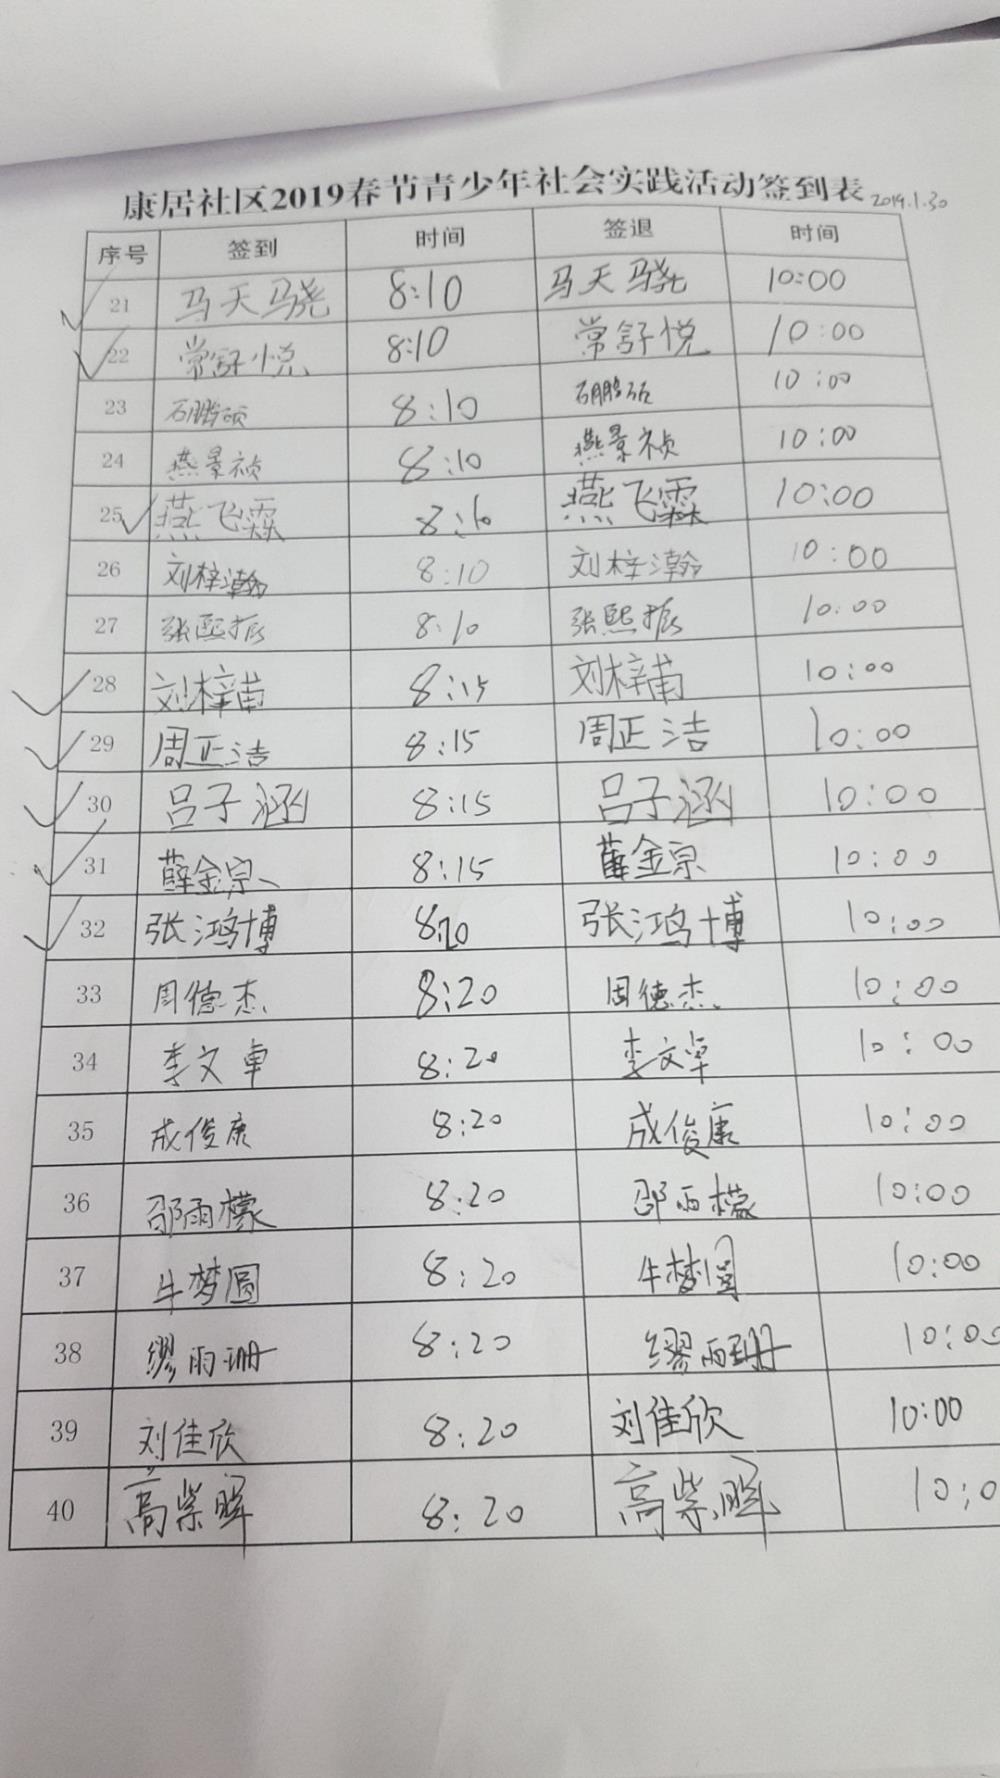 康居社区2019春节青少年社会实践活动签到表 2019.1.30
序号 签到 时间 签退 时间
21 马天骁 8:10 马天骁 10:00
22 常舒悦 8:10 常舒悦 10:00
23 石鹏硕 8:10 石鹏硕 10:00
24 燕景祯 8:10 燕景祯 10:00
25 燕飞霖 8:10 燕飞霖 10:00
26 刘梓瀚 8:10 刘梓瀚 10:00
27 张熙振 8:10 张熙振 10:00
28 刘梓甫 8:15 刘梓甫 10:00
29 周正洁 8:15 周正洁 10:00
30 吕子涵 8:15 吕子涵 10:00
31 薛金宗 8:15 薛金宗 10:00
32 张鸿博 8:20 张鸿博 10:00
33 周德杰 8:20 周德杰 10:00
34 李文卓 8:20 李文卓 10:00
35 成俊康 8:20 成俊康 10:00
36 邵雨檬 8:20 邵雨檬 10:00
37 牛梦圆 8:20 牛梦圆 10:00
38 缪雨珊 8:20 缪雨珊 10:00
39 刘佳欣 8:20 刘佳欣 10:00
40 高紫晖 8:20 高紫晖 10:0